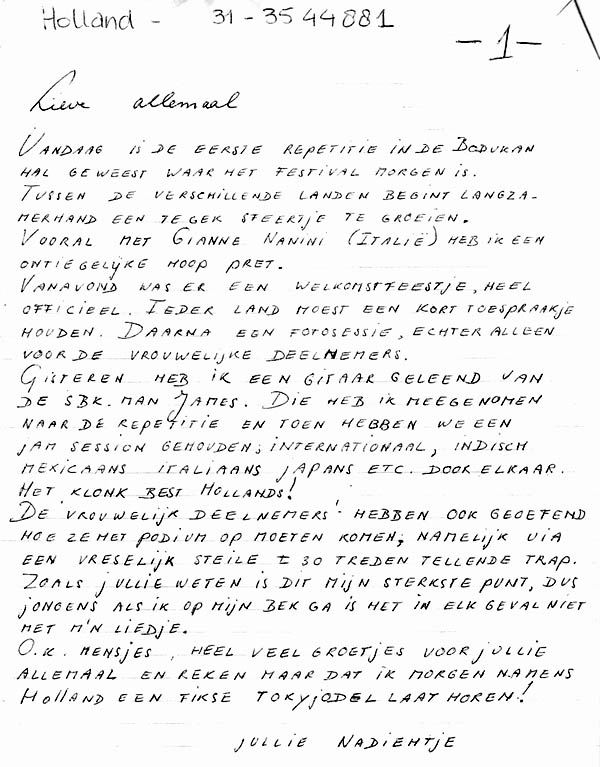 Holland - 31-3544881
-1-
Lieve allemaal
VANDAAG IS DE EERSTE REPETITIE IN DE BODUKAN
HAL GEWEEST WAAR HET FESTIVAL MORGEN IS.
TUSSEN DE VERSCHILLENDE LANDEN BEGINT LANGZA-
MERHAND EEN TE GEK SFEERTJE TE GROEIEN.
VOORAL MET GIANNE NANINI (ITALIË) HEB IK EEN
ONTIEGELIJKE HOOP PRET.
VANAVOND WAS ER EEN WELKOMSTFEESTJE, HEEL
OFFICIEEL. IEDER LAND MOEST EEN KORT TOESPRAAKJE
HOUDEN. DAARNA EEN FOTOSESSIE, ECHTER ALLEEN
VOOR DE VROUWELIJKE DEELNEMERS.
GISTEREN HEB IK EEN GITAAR GELEEND VAN
DE SBK. MAN JAMES. DIE HEB IK MEEGENOMEN
NAAR DE REPETITIE EN TOEN HEBBEN WE EEN
JAM SESSION GEHOUDEN; INTERNATIONAAL, INDISCH
MEXICAANS ITALIAANS JAPANS ETC. DOOR ELKAAR.
HET KLONK BEST HOLLANDS!
DE VROUWELIJK DEELNEMERS HEBBEN OOK GEOEFEND
HOE ZE HET PODIUM OP MOETEN KOMEN, NAMELIJK VIA
EEN VRESELIJK STEILE ± 30 TREDEN TELLENDE TRAP.
ZOALS JULLIE WETEN IS DIT MIJN STERKSTE PUNT, DUS
JONGENS ALS IK OP MIJN BEK GA IS HET IN ELK GEVAL NIET
MET M'N LIEDJE.
O.K. MENSJES, HEEL VEEL GROETJES VOOR JULLIE
ALLEMAAL EN REKEN MAAR DAT IK MORGEN NAMENS
HOLLAND EEN FIKSE TOKYJODEL LAAT HOREN!
JULLIE NADIEHTJE